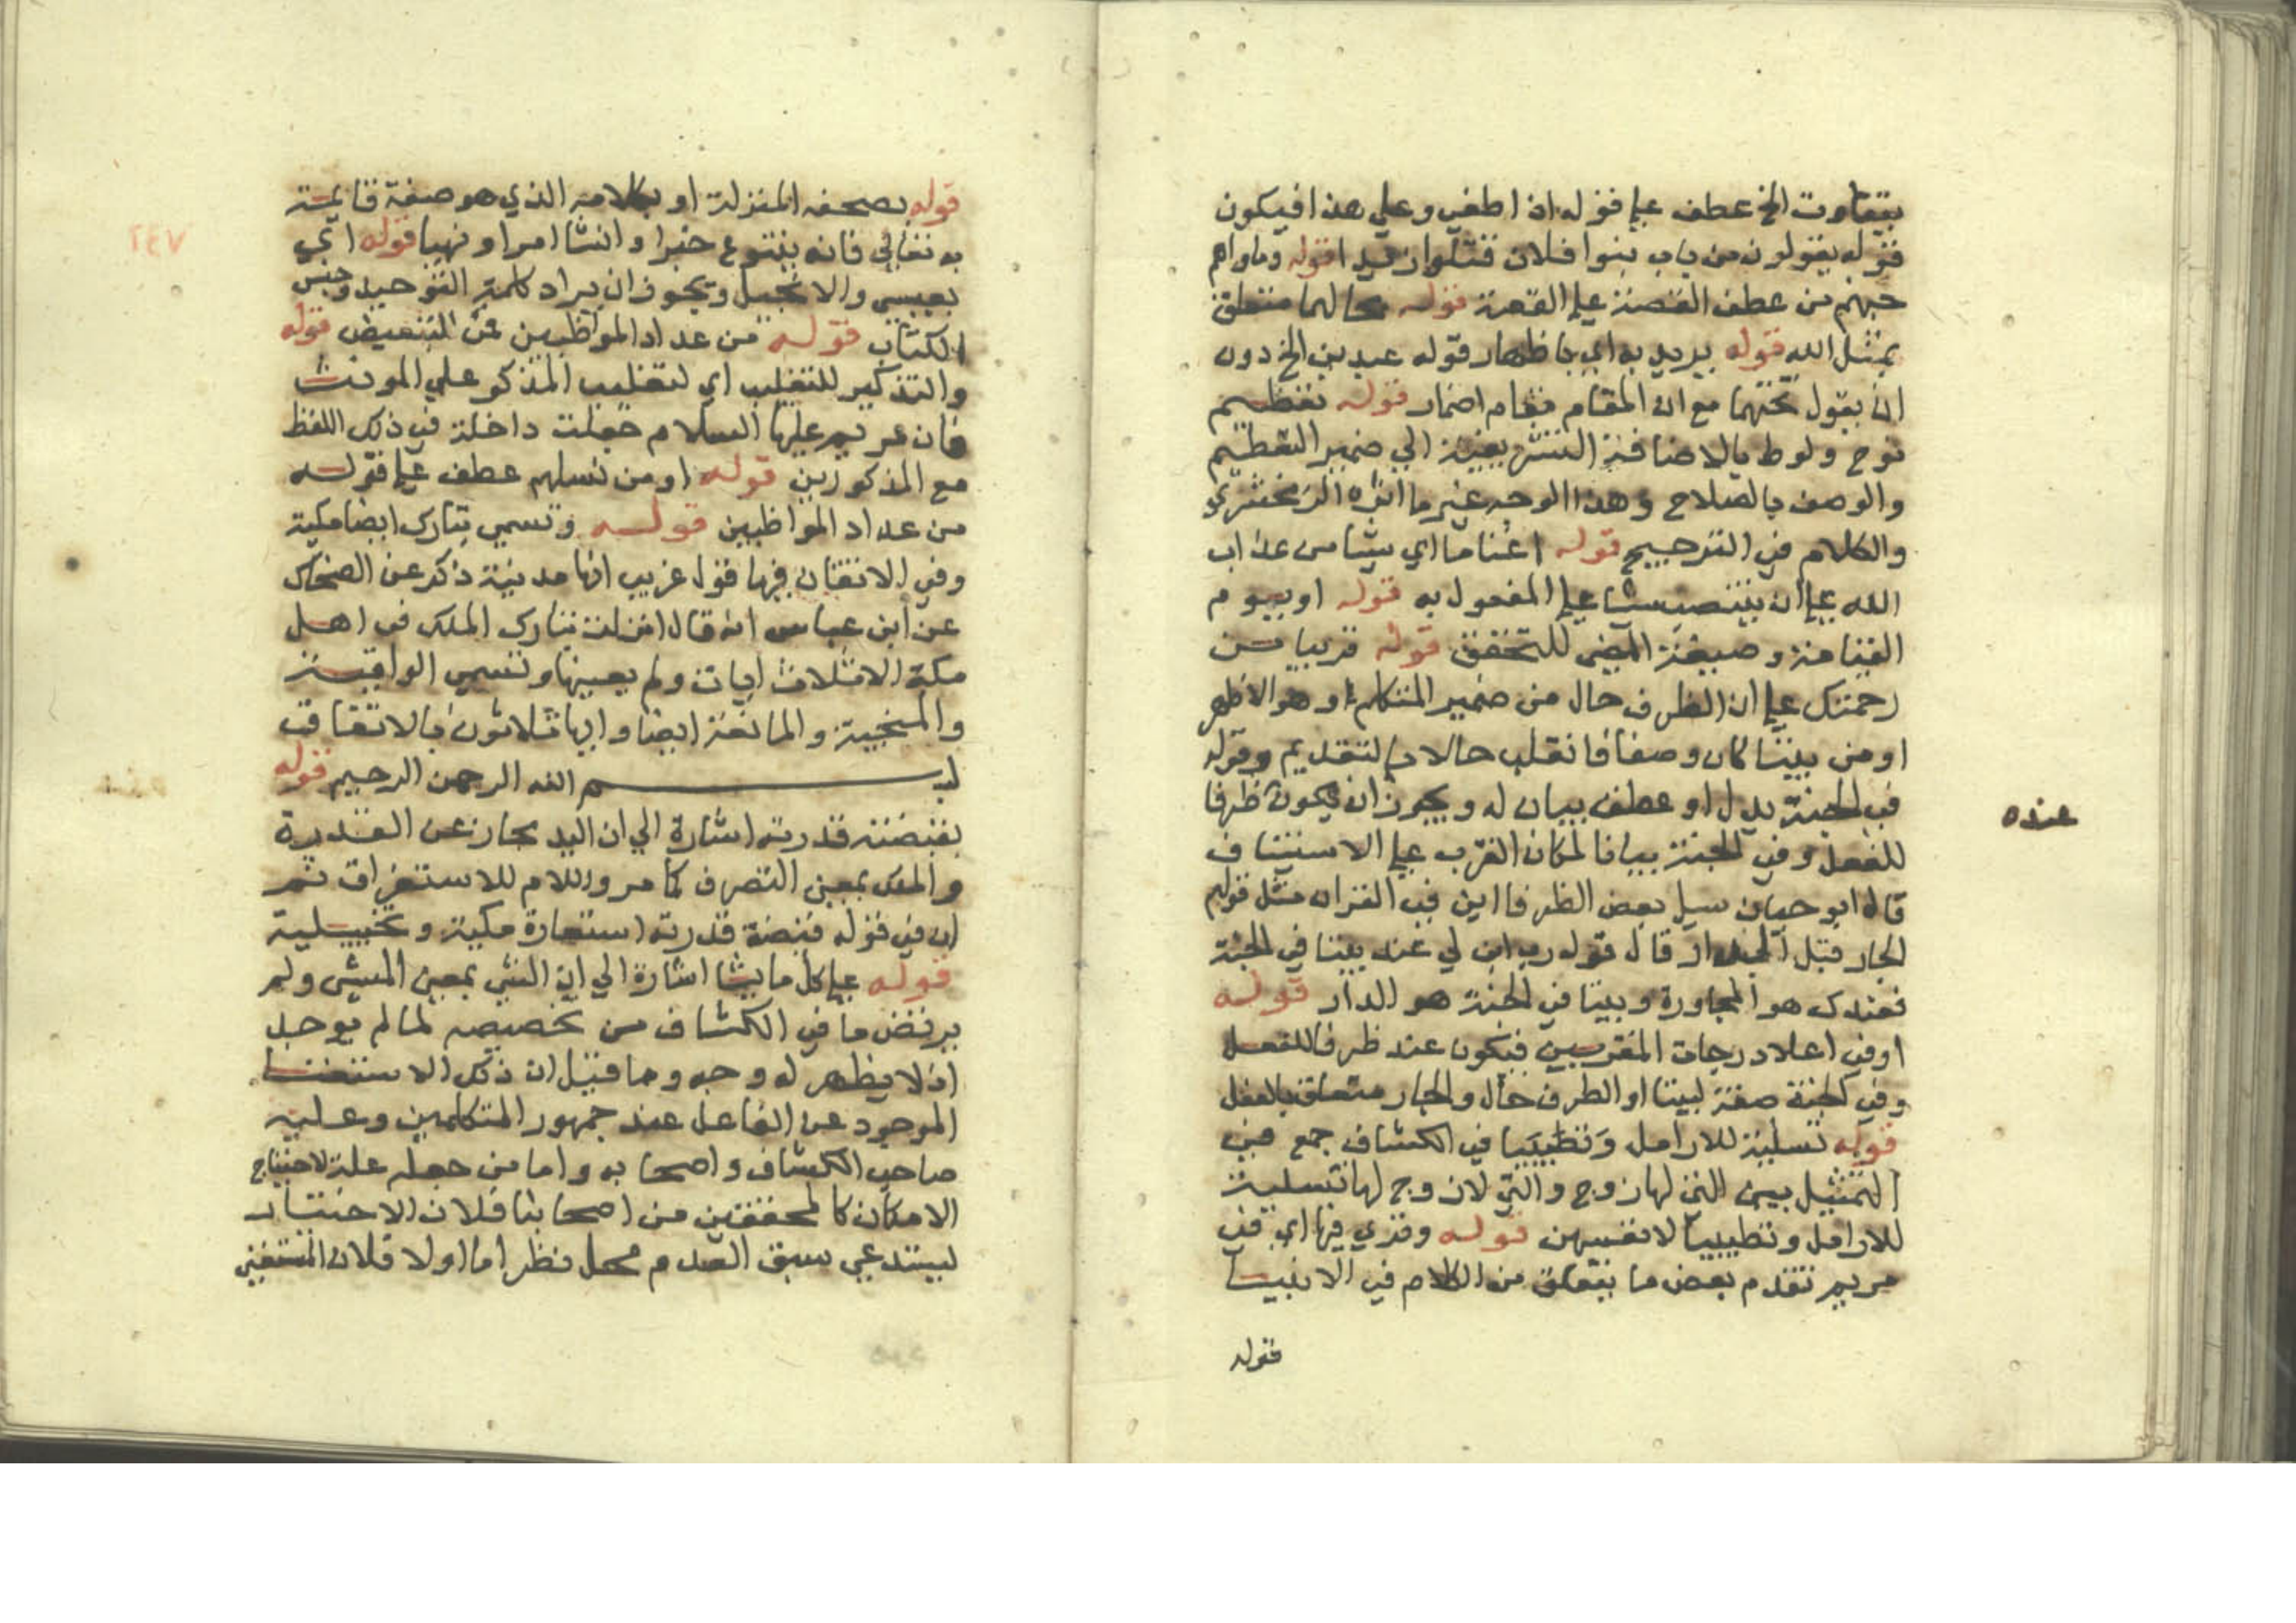 يتفاوت الخ عطف على قوله اذ اطفي وعلى هذا فيكون
قوله يقولون من باب بنوا فلان قتلوا زيدا قوله وماواهم
جهنم من عطف القصة على القصة قوله بحالهما متعلق
بمثل الله قوله يريد به اي باظهار قوله عبدين الخ دون
ان يقول تحتهما مع ان المقام مقام اضمار قوله تعظيم
نوح ولوط بالاضافة التشريفية الي ضمير التعظيم
والوصف بالصلاح وهذا الوجه غير ما اثره الزمخشري
والكلام في الترجيح قوله اغناما اي شيا من عذاب
الله على ان ينتصب شيا على المفعول به قوله او يوم
القيامة وصيغة المضي للتحقق قوله قريبا من
رحمتك على ان الظرف حال من ضمير المتكلم او هو الاظهر
او من بيتا كان وصفا فانقلب حالا بالتقديم وقوله
في الجنة بدل او عطف بيان له ويجوز ان يكون ظرفا
عنده
للفعل وفي الجنة بيانا لمكان القرب على الاستيناف
قال ابو حيان سيل بعض الظرفا اين في القران مثل قولهم
الجار قبل الدار قال قوله رب ابن لي عندك بيتا في الجنة
فعندك هو المجاورة وبيتا في الجنة هو الدار قوله
او في اعلا درجات المقربين فيكون عند ظرفا للفعل
وفي الجنة صفة لبيتا او الظرف حال والجار متعلق بالفعل
قوله تسلية للارامل وتطييبا في الكشاف جمع في
التمثيل بين التي لها زوج والتي لا زوج لها تسلية
للارامل وتطييبا لانفسهن قوله وقري فيها اي في
مريم تقدم بعض ما يتعلق من الكلام في الانبيا
قوله
٢٤٧
قوله بصحفه المنزلة او بكلامه الذي هو صفة قايمة
به تعالي فانه يتنوع خبرا وانشا امرا ونهيا قوله اي
بعيسى والانجيل ويجوز ان يراد كلمة التوحيد وجنس
الكتاب قوله من عداد المواظبين فمن للتبعيض قوله
والتذكير للتغليب اي لتغليب المذكر علي المونث
فان مريم عليها السلام جعلت داخلة في ذلك اللفظ
مع المذكورين قوله او من نسلهم عطف على قوله
من عداد المواظبين قوله وتسمي تبارك ايضا مكية
وفي الاتقان فيها قول غريب انها مدنية ذكر عن الضحاك
عن ابن عباس انه قال انزلت تبارك الملك في اهل
مكة الا ثلاث ايات ولم يعينها وتسمي الواقية
والمنجية والمانعة ايضا وايها ثلاثون بالاتفاق
بسم الله الرحمن الرحيم قوله
بقبضته قدرته اشارة الي ان اليد مجاز عن القدرة
والملك بمعنى التصرف كما مر واللام للاستغراق ثم
ان في قوله قبضة قدرته استعارة مكية وتخييلية
قوله على كل ما يشا اشارة الي ان الشي بمعنى المشي ولم
يرتض ما في الكشاف من تخصيصه لما لم يوجد
اذ لا يظهر له وجه وما قيل ان ذلك لاستغنا
الموجود عن الفاعل عند جمهور المتكلمين وعليه
صاحب الكشاف واصحابه واما من جعله علة لاحتياج
الامكان كالمحققين من اصحابنا فلان الاختيار
ليستدعي سبق العدم محل نظر اما اولا فلان المستغني